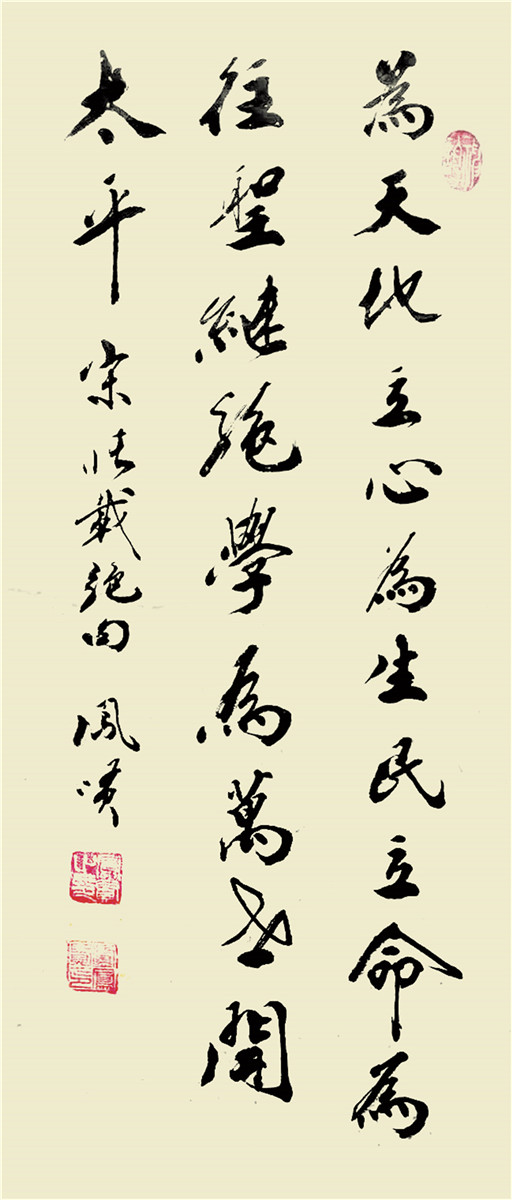 為天地立心為生民立命為
往聖繼絕學為萬世開
太平 宋張載絕句 鳳